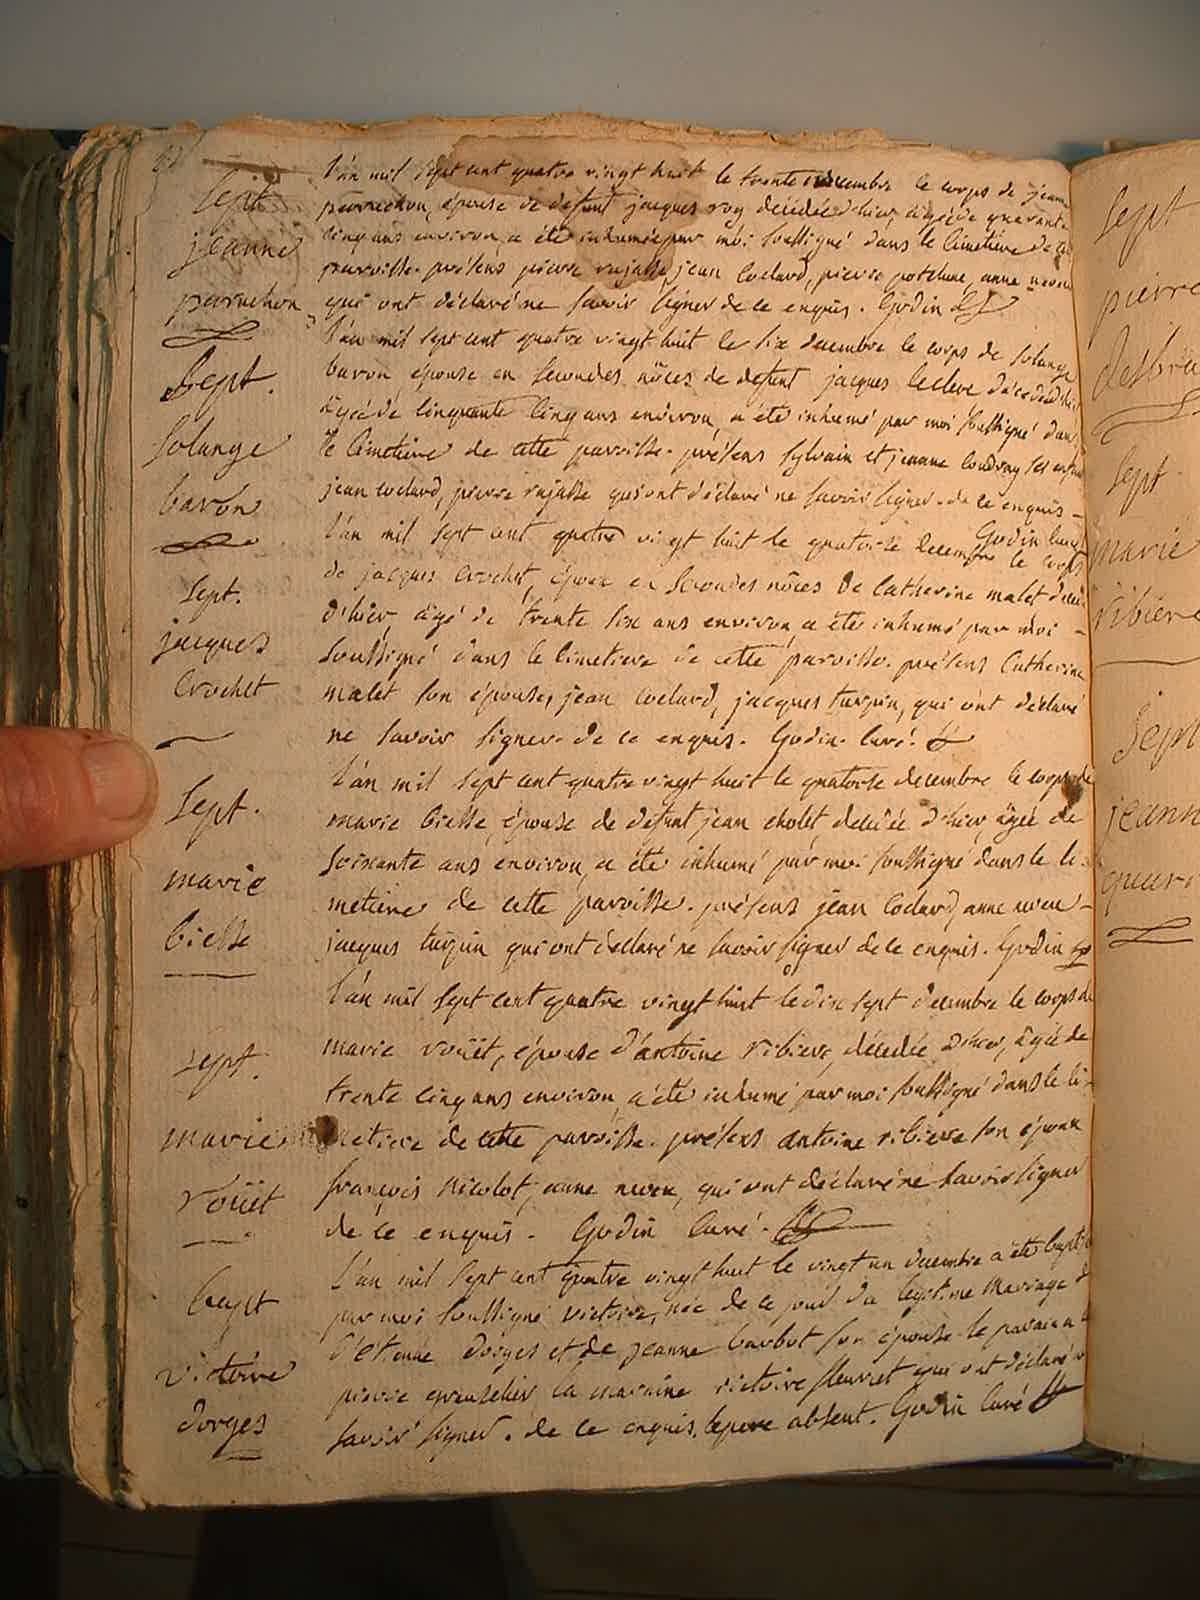 Sept
jeanne
perruchon
L'an mil sept cent quatre vingt huit le trente novembre le corps de jeanne
perruchon, épouse de defunt jacques roy décédée d'hier, âgée de quarante
cinq ans environ a été inhumée par moi soussigné dans le cimetière de
parroisse. présens pierre rajasse, jean coclard, pierre potelune, anne
qui ont déclaré ne savoir signer de ce enquis. Godin
Sept.
Solange
baron
L'an mil sept cent quatre vingt huit le six decembre le corps de solange
baron épouse en secondes nôces de defunt jacques leclerc décédée d'hier
âgée de cinquante cinq ans environ, a été inhumé par moi soussigné dans
le cimetière de cette paroisse. présens sylvain et jeanne coudray ses enfans
jean coclard, pierre rajasse qui ont déclaré ne savoir signer. de ce enquis -
Godin curé
Sept.
jacques
Crochet
L'an mil sept cent quatre vingt huit le quatorze decembre le corps
de jacques Crochet, époux en secondes nôces de Catherine malet décédé
d'hier âgé de trente six ans environ, a été inhumé par moi -
soussigné dans le cimetiere de cette paroisse. présens Catherine
malet son épouse, jean coclard, jacques turpin, qui ont déclaré
ne savoir signer. de ce enquis. Godin. curé.
Sept.
marie
biesse
L'an mil sept cent quatre vingt huit le quatorse decembre le corps de
marie biesse, épouse de defunt jean cholet décédée d'hier, âgée de
soixante ans environ, a été inhumé par moi soussigné dans le ci-
metière de cette paroisse. présens jean coclard, anne
jacques turpin qui ont déclaré ne savoir signer de ce enquis. Godin
Sept.
marie
roüet
L'an mil sept cent quatre vingt huit le dix sept decembre le corps de
marie roüet, épouse d'antoine ribiere, décédée d'hier, âgée de
trente cinq ans environ, a été inhumé par moi soussigné dans le ci-
metiere de cette paroisse. présens antoine ribiere son époux
françois nicolot, anne, qui ont déclaré ne savoir signer
de ce enquis. Godin curé.
bapt
victoire
dorges
L'an mil sept cent quatre vingt huit le vingt un decembre a été baptisé
par moi soussigné victoire, née de ce jour du legitime mariage
d'Etienne dorges et de jeanne barbot son épouse. le parain a
pierre la maraine victoire fleuriet qui ont déclaré
savoir signer. de ce enquis, le pere absent. Godin curé
Sept
pierre
Sept
marie
ribiere
Sept